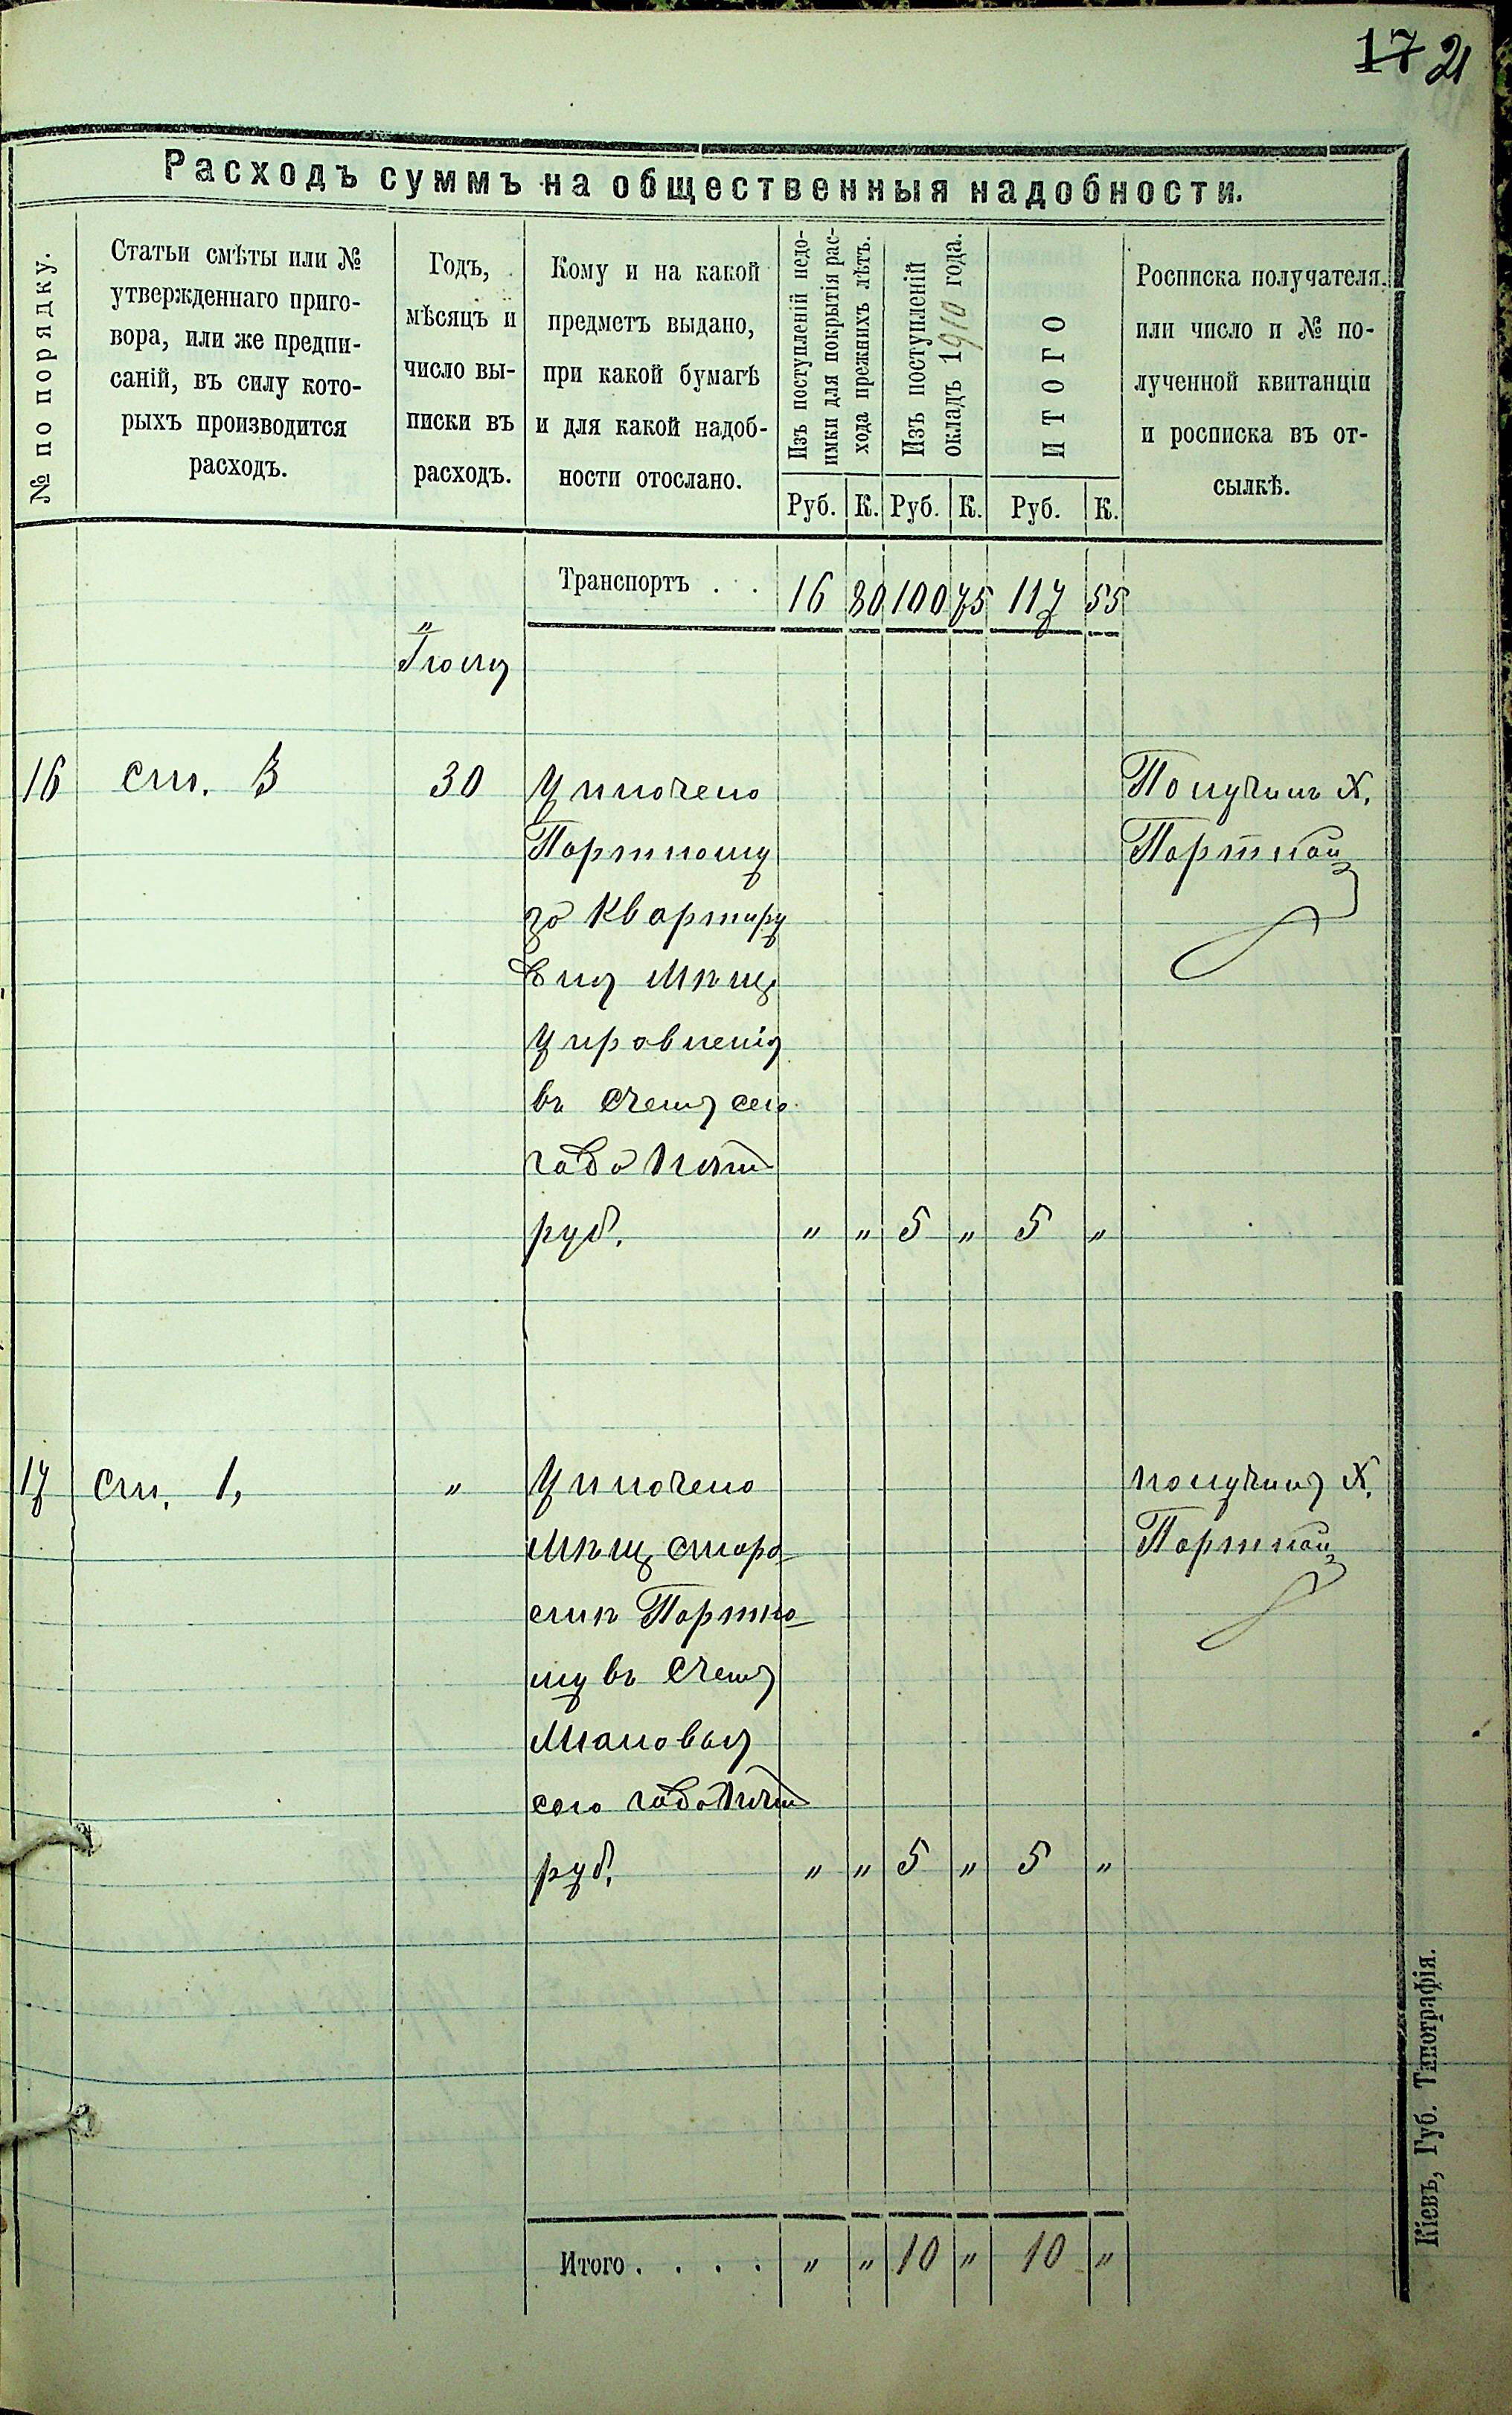 17 21
Расходъ суммъ на общественныя надобности.
№ по порядку.
Статьи смѣты или №
утвержденнаго приго-
вора, или же предпи-
саній, въ силу кото-
рыхъ производится
расходъ.
Годъ,
мѣсяцъ и
число вы-
писки въ
расходъ.
Кому и на какой
предметъ выдано,
при какой бумагѣ
и для какой надоб-
ности отослано.
Изъ поступленій недо-
имки для покрытія рас-
хода прежнихъ лѣтъ.
Изъ поступленій
окладъ 1910 года.
ИТОГО
Росписка получателя
или число и № по-
лученной квитанціи
и росписка въ от-
сылкѣ.
Руб. К. Руб. К. Руб. К.
Транспортъ . . 16 80 100 75 117 55
"
16 ст. 3 30 Уплочено
Портному
за квартиру
для Мѣщ
управленія
въ счетъ сего
года пять
руб. " " 5 " 5 "
Получилъ Х.
Портной
17 ст. 1, " Уплочено
Мѣщ старо
стѣ Портно
му въ счетъ
жалованья
сего года пять
руб. " " 5 " 5 "
получилъ Х.
Портной
Итого . . . . " " 10 " 10 "
Кіевъ, Губ. Типографія.